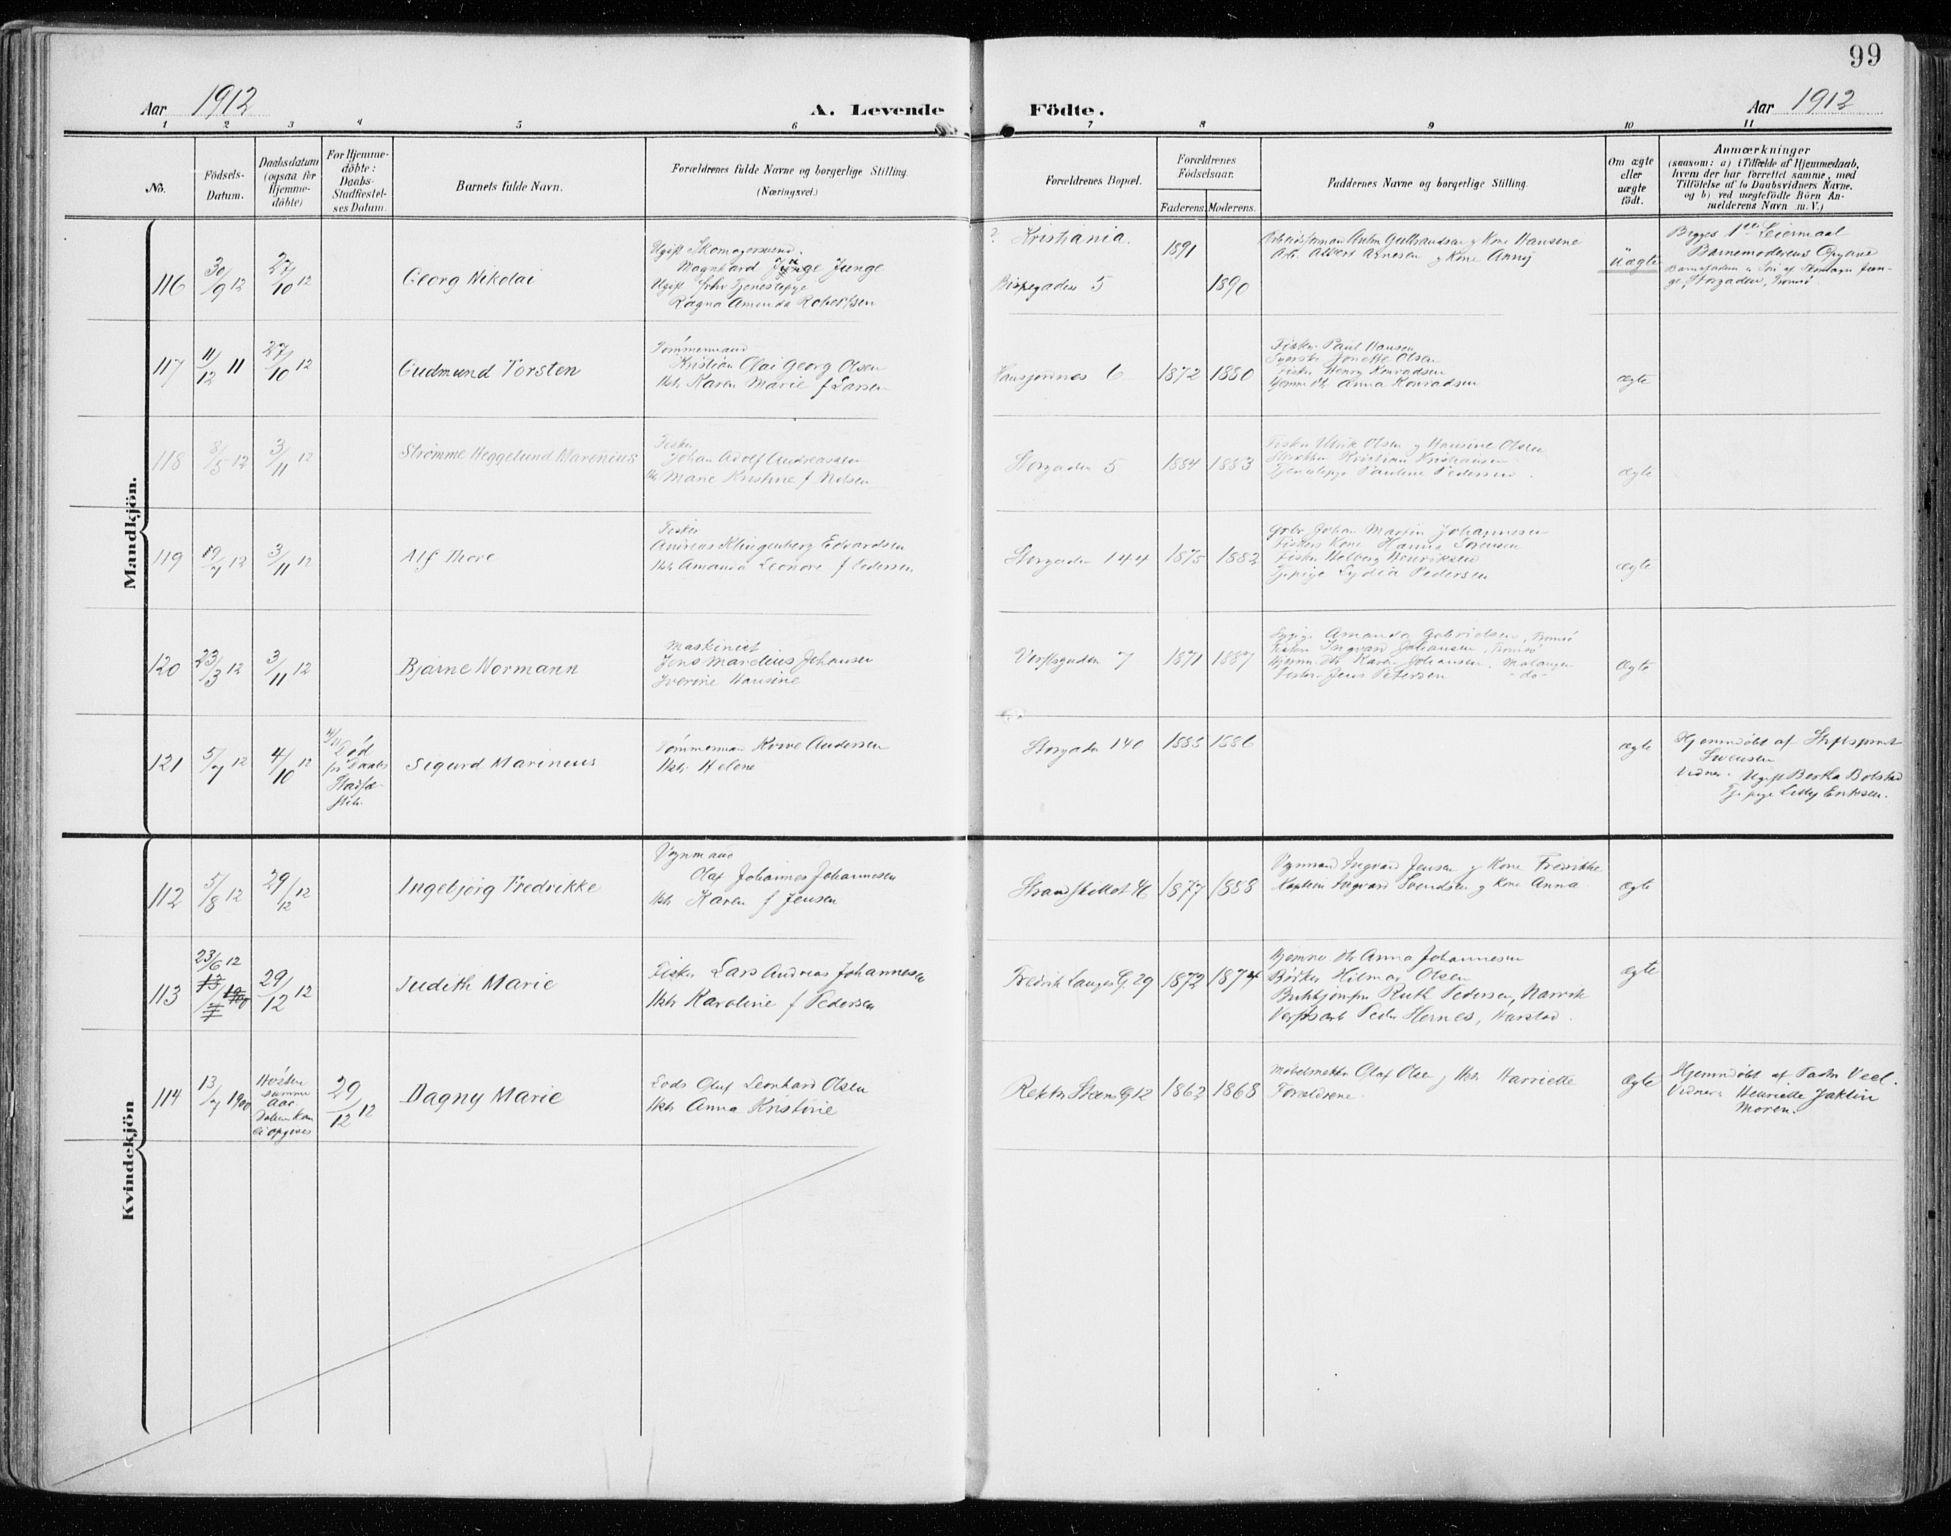 99
Aar 1912
A. Levende Födte.
Aar 1912
1 2 3 4 5 6 7 8 9 10 11
No.
Födsels-Datum.
Daabsdatum (ogsaa for Hjemme-döbte)
For Hjemme-döbte: Daabs-Stadfæstel-ses Datum.
Barnets fulde Navn.
Forældrenes fulde Navne og borgerlige Stilling.
(Næringsvei.)
Forældrenes Bopæl.
Forældrenes Födselsaar.
Faderens. Moderens.
Faddernes Navne og borgerlige Stilling.
Om ægte eller uægte födt.
Anmærkninger
(saasom: a) i Tilfælde af Hjemmedaab,
hvem der har forrettet samme, med
Tilföielse af to Daabsvidners Navne.
og b) ved uægtefödte Börn An-
melderens Navn m. V.)
Mandkjön.
116 30/9 12 27/10 12 Georg Nikolai
Ugift Skomagersvend
Magnhard Junge
Ugift Tjenestepige
Ragna Amanda Robertsen
? Kristiania.
Bispegaden 5
1891
1890
Arbeidsformand Anton Gulbrandsen og Kone Hansine
Arb. Albert Arnesen og Kone Anny
Uægte
Begges 1ste Leiermaal
Barnemoderens Opgave
Storgaden, Tromsø
117 11/12 11 27/10 12 Gudmund Torsten
Tømmermand
Kristian Olai Georg Olsen
Hstr Karen Marie f Larsen
Hansjordnes 6 1872 1880
Fisker Paul Hansen
Syerske Jonette Olsen
Fisker Henry Konradsen
Hjemmev. Dtr Anna Konradsen
ægte
118 8/5 12 3/11 12 Strømme Heggelund Marenius
Fisker
Johan Adolf Andreassen
Hstr Marie Kristine f Nilsen
Storgaden 5 1884 1883
Fisker Ulrik Olsen og Hansine Olsen
Kristian Kristiansen
Tjenestepige Pauline Pedersen
ægte
119 19/7 12 3/11 12 Alf Thore
Fisker
Andreas Klingenberg Edvardsen
Hstr Amanda Leonore f Pedersen
Storgaden 144 1875 1882
Grbr Johan Martin Johannesen
Fiskers Kone Hanna Sørensen
Fisker Holberg Henriksen
Tjpige Lydia Pedersen
ægte
120 23/3 12 3/11 12 Bjarne Normann
Maskinist
Jens Mardius Johansen
Iverine Hansine
Verftsgaden 7 1871 1887
Sypige Amanda Gabrielsen, Tromsø
Fisker Ingvard Johansen, Tromsø
Hjemmev. Dtr Karen Johansen, Malangen
Fisker Jens Petersen -do-
ægte
121 5/7 12 4/10 12
4/11 Død før Daabs Stadfæstelse
Sigurd Marinius
Tømmermand Andersen
Hstr Helene
Storgaden 140 1885 1886
ægte
Hjemmdøbt af Stiftsprovst
Svensen
Vidner: Ugift Bertha Bolstad
Tjpige Lilly Eriksen.
Kvindekjön
112 5/8 12 29/12 12 Ingebjörg Fredrikke
Vognmand
Olaf Johannes Johannesen
Hstr Karen f Jensen
Strandskillet 1877 1888
Vognmand Ingvard Jensen og Kone Fredrikke
Kaptein Ingvard Svendsen og Kone Anna
ægte
113 23/6 12 29/12 12 Judith Marie
Fisker Lars Andreas Johannesen
Hstr Karoline f Pedersen
Fredrik Langes G. 29 1872 1874
Hjemmev. Dtr Anna Johannesen
Bødker Hilmar Olsen
Butikjomfru Ruth Pedersen, Narvik
Verftsarb Peder Hernes, Harstad.
ægte
114 13/7 1900
Høsten samme Aar Datum kan ei opgives
29/12 12 Dagny Marie
Lods Oluf Leonhard Olsen
Hstr Anna Kristine
Rektor Steens G. 12 1862 1868
Møbelsnekker Olaf Olsen og Hstr Harriette
Forældrene.
ægte
Hjemmdøbt af Pastor Veel.
Vidner: Henriette Jaklin
Moren.